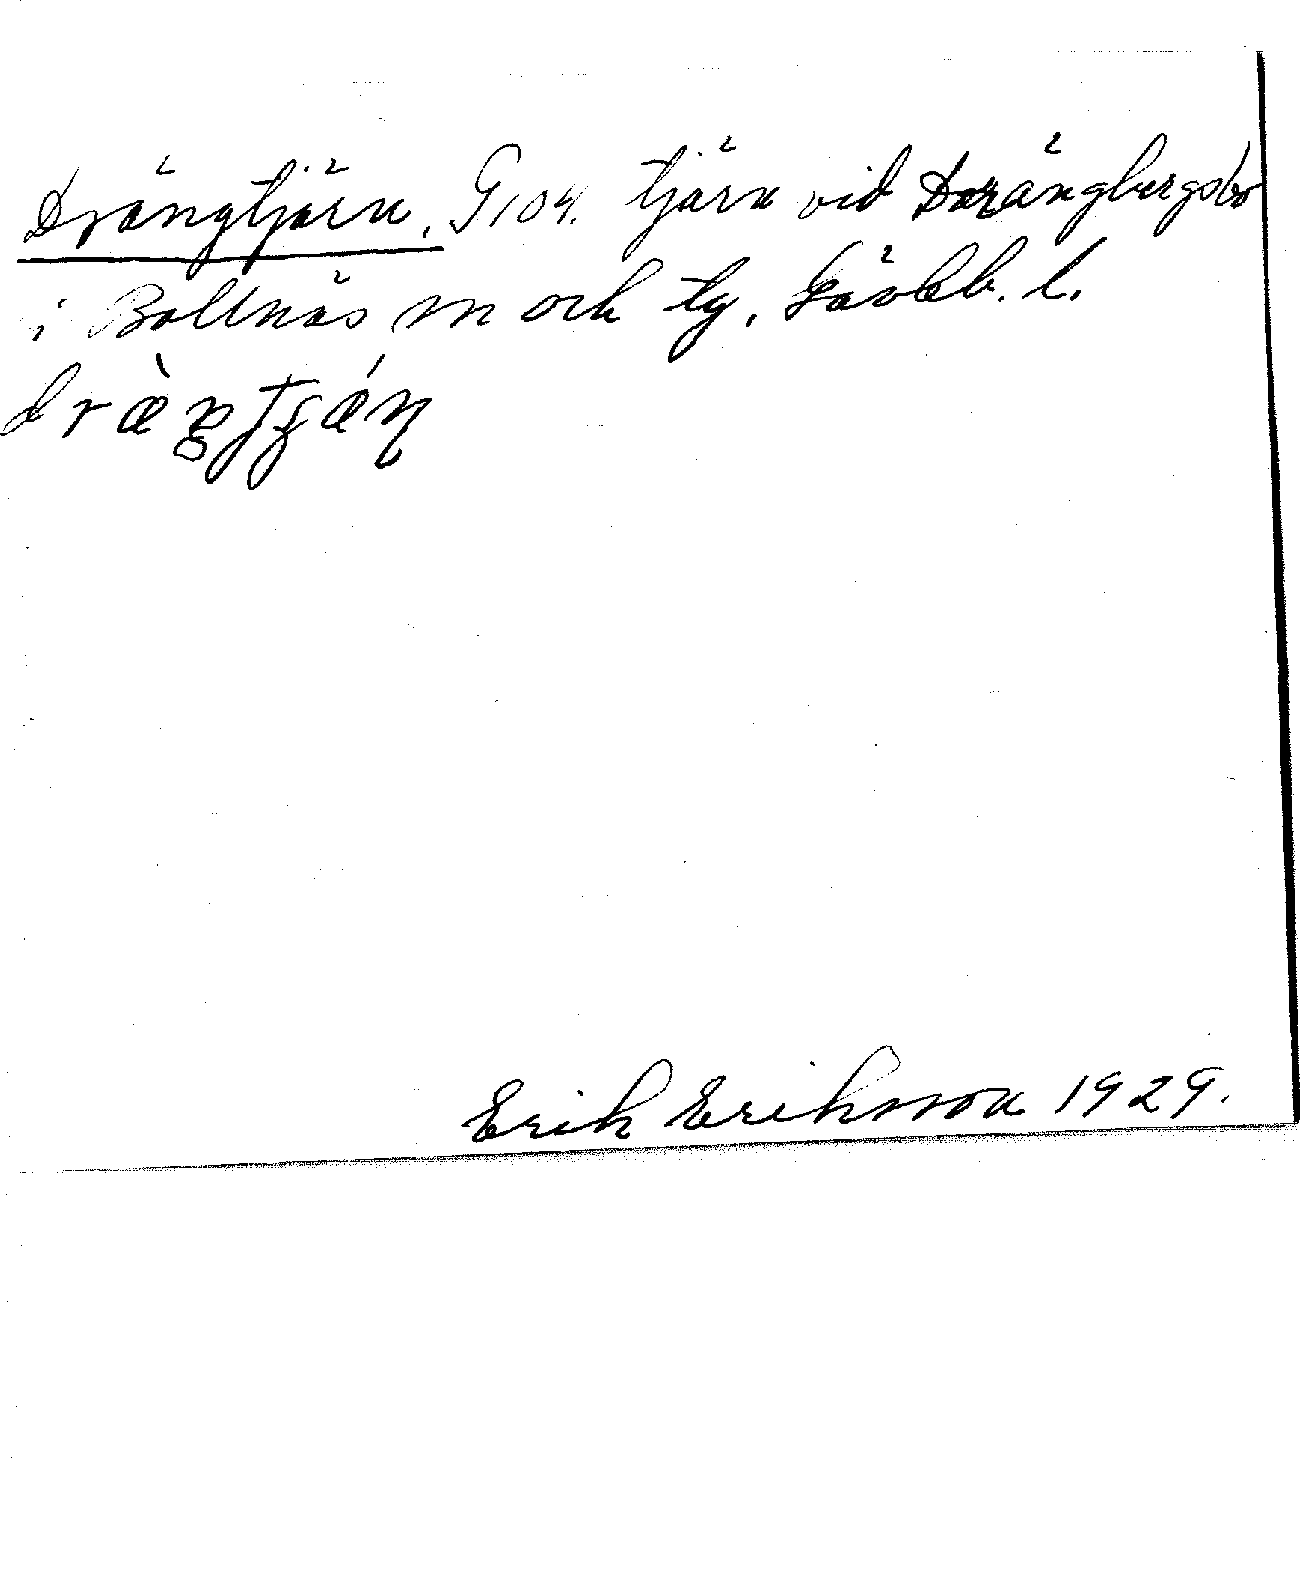 Drängtjärn. G104. tjärn vid Drängbergsbo
i Bollnäs sn och tg, Gävleb. l.
Erik Eriksson 1929.